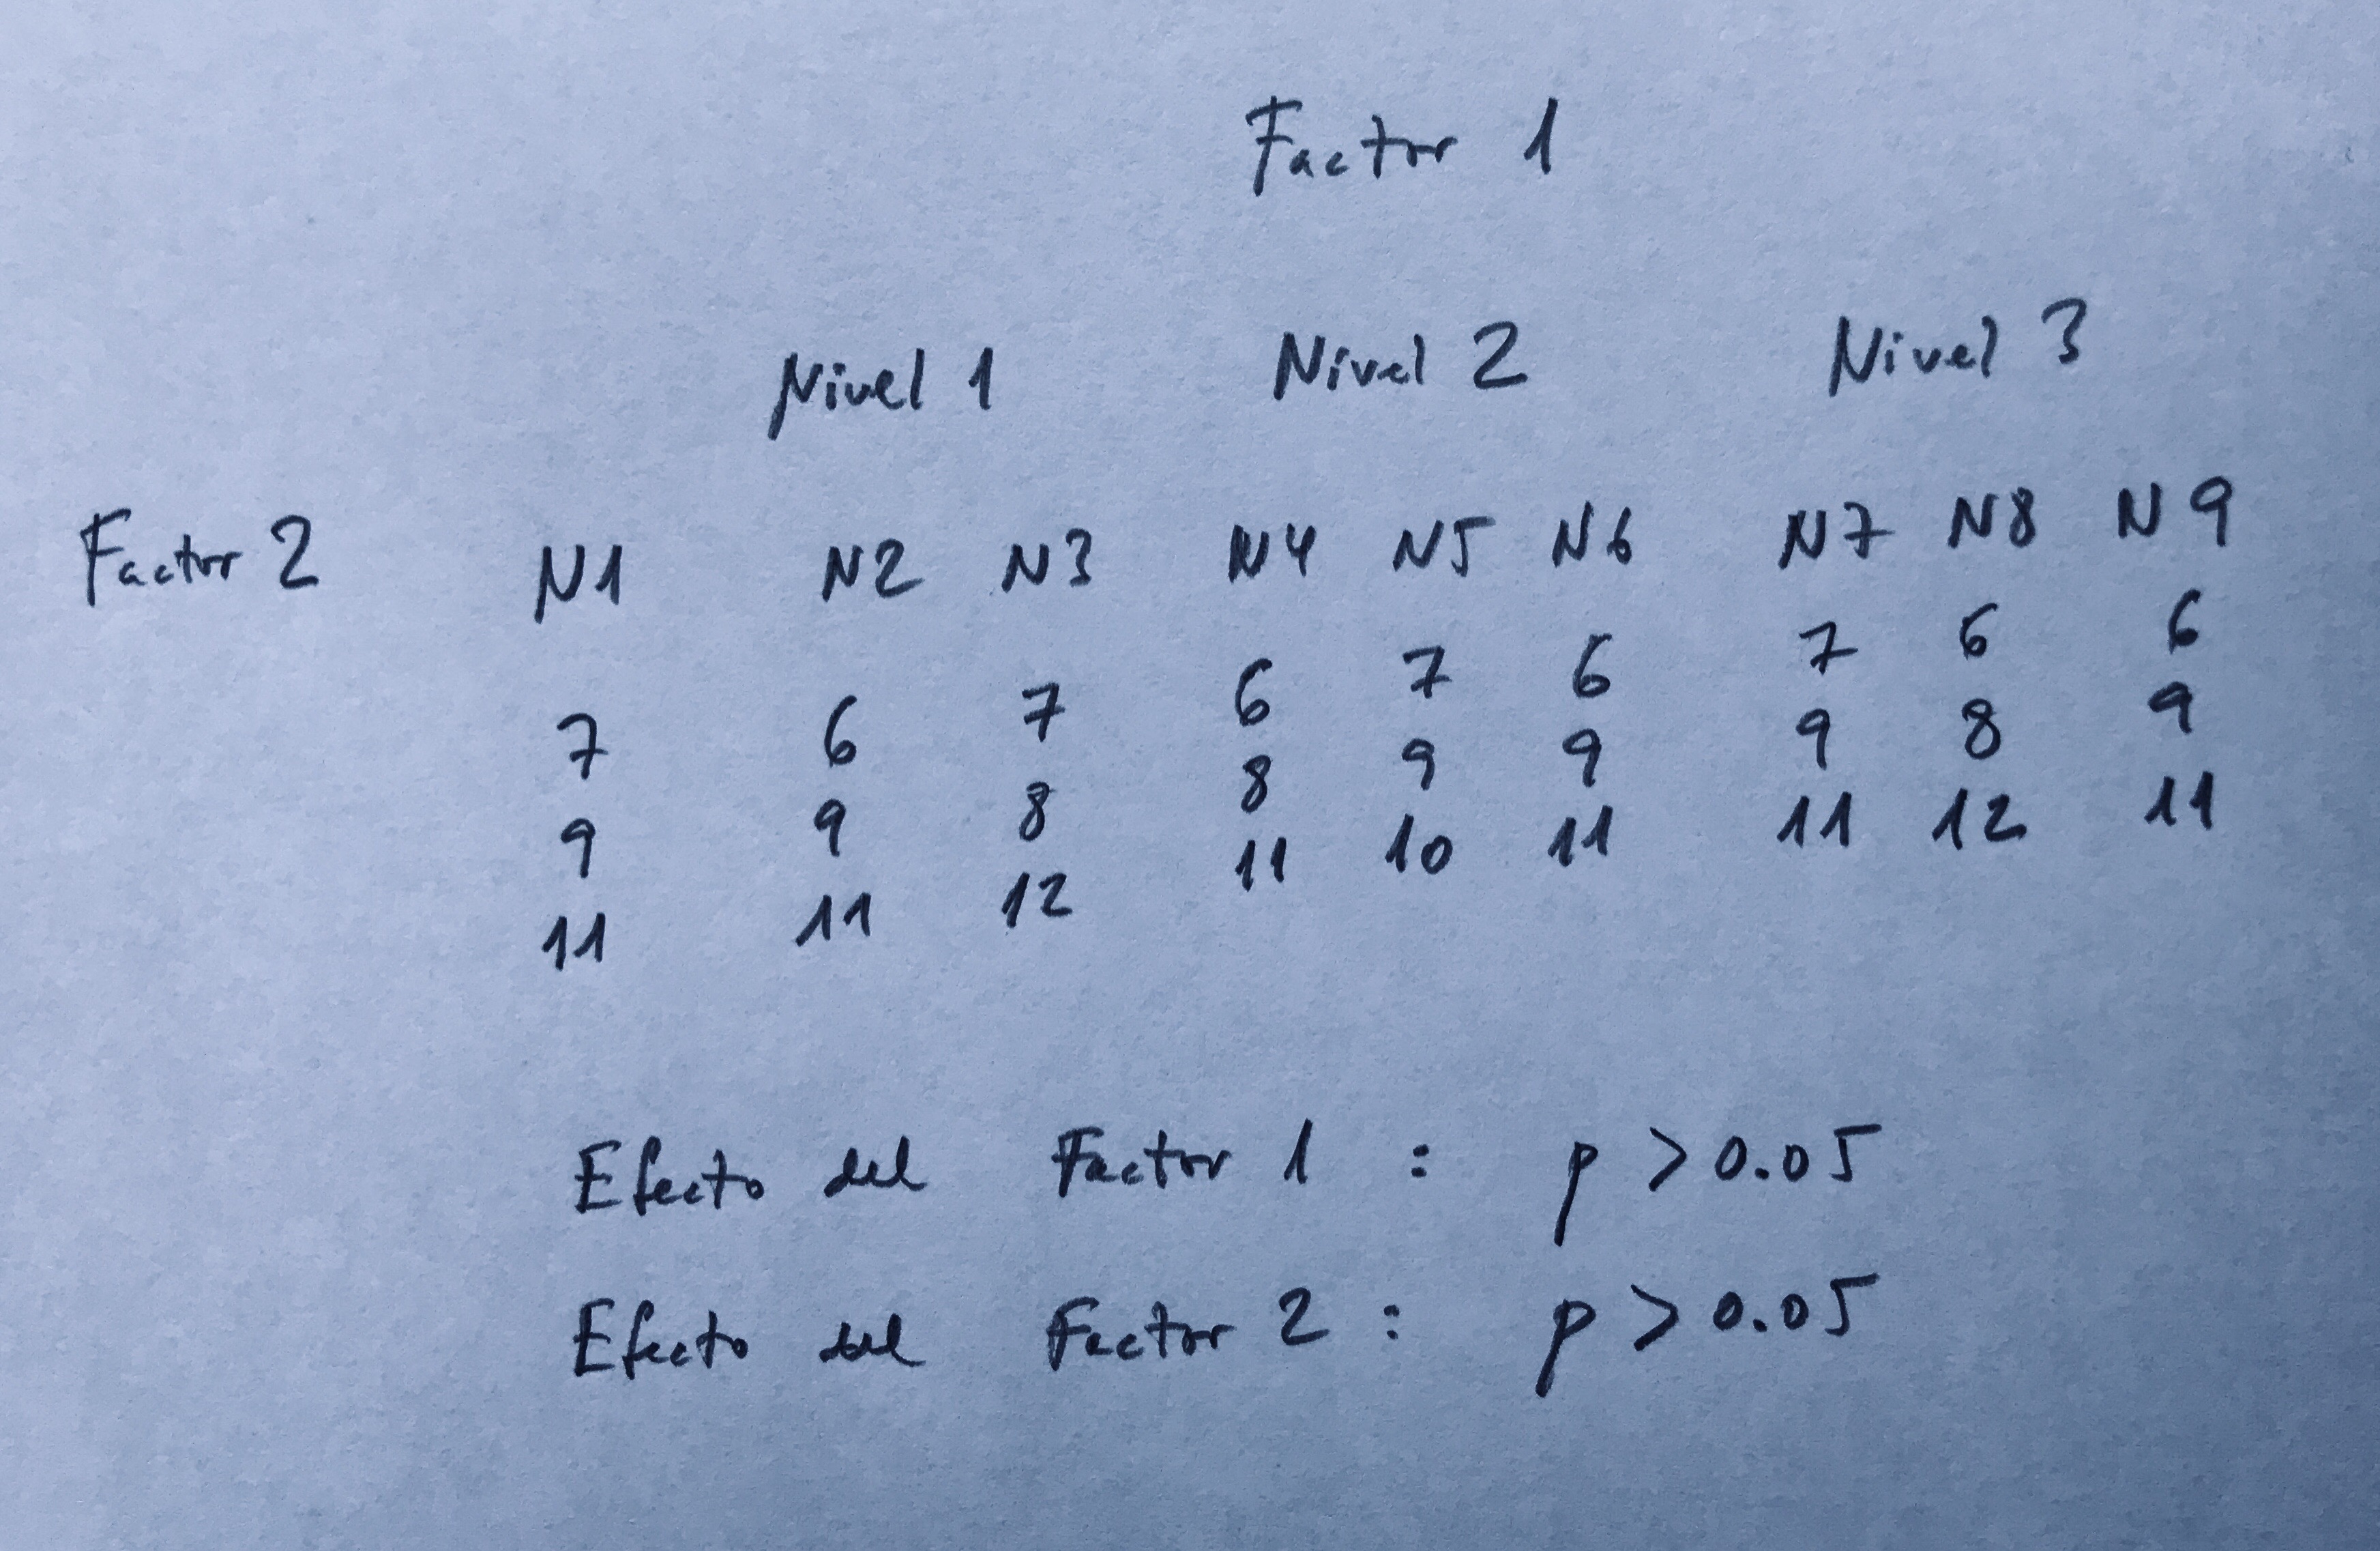 Factor 1
Nivel 1 Nivel 2 Nivel 3
Factor 2 N1 N2 N3 N4 N5 N6 N7 N8 N9
7 6 7 6 7 6 7 6 6
9 9 8 8 9 9 9 8 9
11 11 12 11 10 11 11 12 11
Efecto del Factor 1 : p > 0.05
Efecto del Factor 2 : p > 0.05